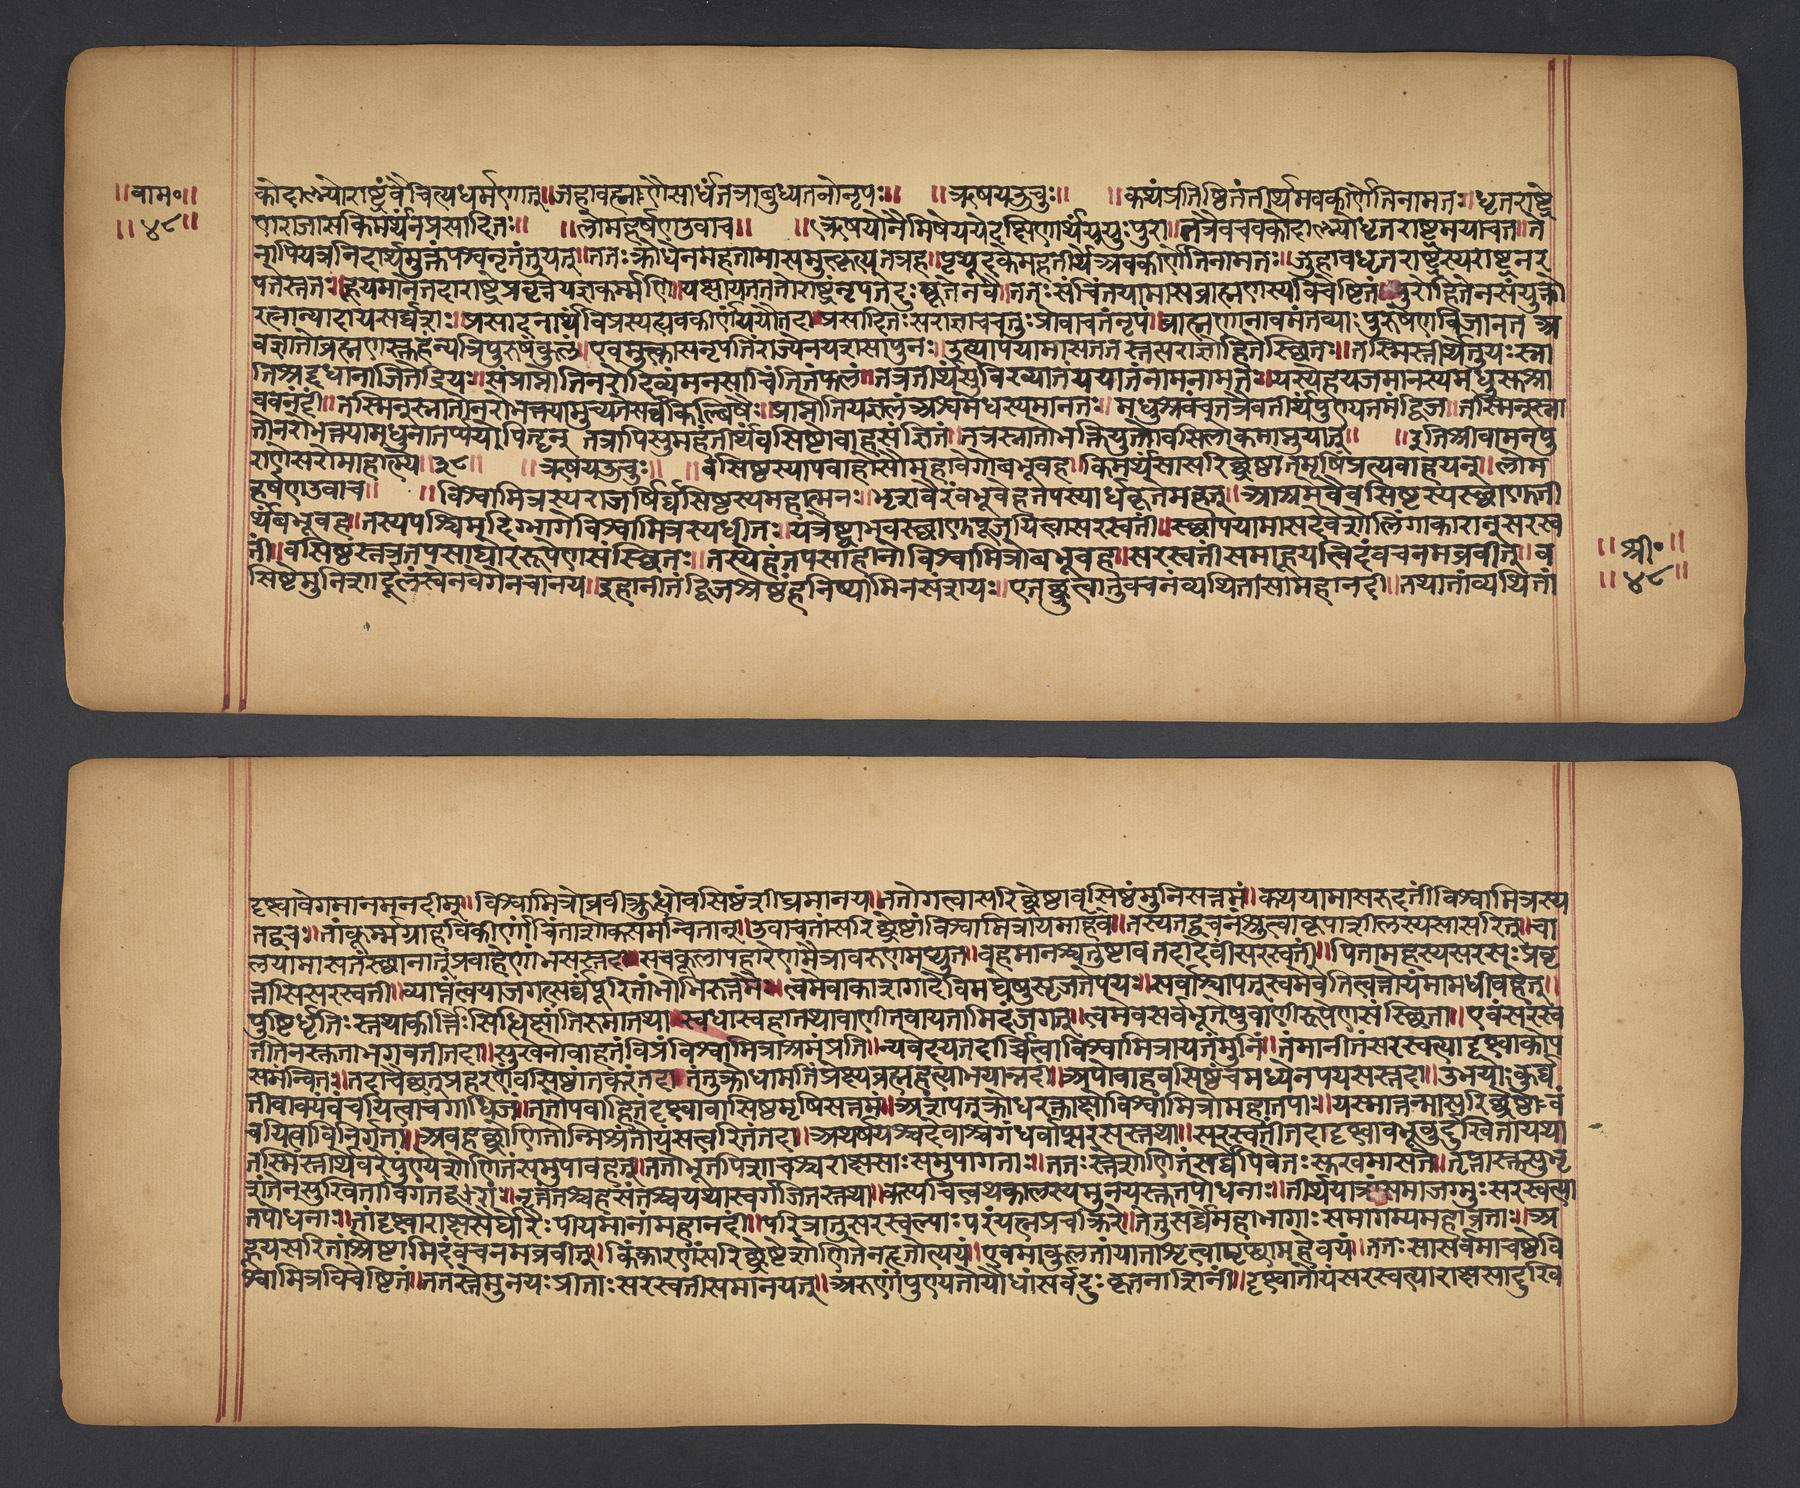 ॥वाम॰॥
॥४८॥
कोदाल्भ्योराष्ट्रंवैचित्यधर्मणात्॥जुहावब्राह्मणैःसार्धंतत्राबुध्यतनोनृपः॥ ॥ऋषयऊचुः॥ ॥कथंप्रतिष्ठितंतीर्थमवकीर्णेतिनामत॥धृतराष्ट्रे
णराजासकिमर्थंनप्रसादितः॥ ॥लोमहर्षणउवाच॥ ॥ऋषयोनैमिषेययेदक्षिणार्थंययुःपुरा॥तत्रैवचवकोदाल्भ्योधृतराष्ट्रमयाचत॥त
त्रापियत्रनिंदार्थमुक्तंपश्वनृतंतुयत्॥ततःक्रोधेनमहतामांसमुत्कृत्यतत्रह॥पृथूदकेमहातीर्थेअवकीर्णेतिनामतः॥जुहावधृतराष्ट्रस्यराष्ट्रंनर
पतेस्ततः॥हूयमानेतदाराष्ट्रेप्रवृत्तेयज्ञकर्म्मणि॥यक्षीयतततोराष्ट्रंनृपतेदुःष्कृतेनवै॥ततःसंचिंतयामासब्राह्मणस्यविचेष्टितं॥पुरोहितेनसंयुक्तो
रत्नान्यादायसर्वशः॥प्रसादनार्थंविप्रस्यह्यवकीर्णंययौतदा॥प्रसादितःसराज्ञाचचतुःप्रोवाचतंनृपं॥ब्राह्मणानावमंतव्याःपुरुषेणविजानत॥अ
वज्ञातोब्राह्मणस्तुहन्यत्रिपुरुषंकुलं॥एवमुक्त्वासनृपतिंराज्येनयशसापुनः॥उत्थापयामासततस्तस्यराज्ञोहितेस्थितः॥तस्मिंस्तीर्थेतुयःस्ना
तिश्रद्दधानोजितेंद्रियः॥संप्राप्नोतिनरोदिव्यंमनसाचिंतितंफलं॥तत्रतीर्थंसुविख्यातंययातंनामनामतः॥यस्येहयजमानस्यमधुसुस्राव
वैनदी॥तस्मिन्स्नातोनरोभक्त्यामुच्यतेसर्वकिल्बिषैः॥प्राप्नोतियत्फलंअश्वमेधस्यमानतः॥मधुश्रवंचतत्रैवतीर्थंपुण्यतमंद्विज॥तस्मिन्स्ना
तोनरोभक्त्यामधुनातर्प्पयेपितॄन् तत्रापिसुमहंतीर्थंवसिष्ठोवाहसंज्ञितं॥तत्रस्नातोभक्तियुक्तोवसिलोकमाप्नुयात्॥ ॥इतिश्रीवामनपु
राणेसरोमाहात्म्ये॥३८॥ ॥ऋषयऊचुः॥ ॥वसिष्ठस्यापवाहोसौमहावेगोबभूवह॥किमर्थंसासरिच्छ्रेष्ठातमृषिंप्रत्यवाहयत्॥लोम
हर्षणउवाच॥ ॥विश्वामित्रस्यराजर्षेर्वसिष्ठस्यमहात्मनः॥भृशंवैरंवभूवेहतपस्यार्धकृतेमहत्॥आश्रमेवैवसिष्ठस्यस्थाणुती
र्थंबभूवह॥तस्यपश्चिमदिग्भागेविश्वामित्रस्यधीतः॥यत्रेष्ट्वाभुवस्थाणुंपूजयित्वासरस्वतीं॥स्थापयामासदेवेशोलिंगाकारांसरस्व
तीं॥वसिष्ठस्तत्रतपसाघोररूपेणसंस्थितः॥तस्येहतपसाहीनोविश्वामित्रोबभूवह॥सरस्वतींसमाहूयत्विदंवचनमब्रवीत्॥व
सिष्ठंमुनिशार्दूलंस्वेनवेगेनचानय॥इहानीतंद्विजश्रेष्ठंहनिष्यामिनसंशयः॥एतच्छ्रुत्वातुवचनंव्यथितासामहानदी॥तथातांव्यथितां
॥श्री॰॥
॥४८॥
दृष्ट्वावेगमानमनदीम्॥विश्वामित्रोब्रवीत्क्रुद्धोवसिष्ठंशीघ्रमानय॥ततोगत्वासरिच्छ्रेष्ठावसिष्ठंमुनिसत्तमं॥कथयामासरुदतीविश्वामित्रस्य
तद्वचः॥तांकूर्म्मग्राहविकीर्णांचिंताशोकसमन्विताम्॥उवाचतांसरिच्छ्रेष्ठांविश्वामित्रायमांवह॥तस्यतद्वचनंश्रुत्वाकृपाशीलस्यसासरित्॥चा
लयामासतंस्थानात्प्रवाहेणांभसस्तदा॥सचकूलापहारेणमैत्रावरुणमुप्युत॥वहमानश्चतुष्टावतदादेवींसरस्वतीं॥पितामहस्यसरसःप्रवृ
त्तासिसरस्वती॥व्याप्तंत्वयाजगत्सर्वंपूरितांभोभिरुत्तमैः॥त्वमेवाकाशगादेविमेघेषुसृजतेपयः॥सर्वाश्चापस्त्वमेवेतित्वत्तोयंमामधीवहेत॥
पुष्टिर्धृतिःस्तथाकीर्त्तिःसिद्धिःकांतिरुमातथा॥स्वधास्वाहातथावाणीत्वायतामिदंजगत्॥त्वमेवसर्वभूतेषुवाणीरूपेणसंस्थिता॥एवंसंस्व
तीतेनस्तुताभगवतीतदा॥सुखेनोवाहतंविप्रंविश्वामित्राश्रमंप्रति॥न्यवेदयतदार्च्चित्वाविश्वामित्रायतंमुनिं॥तमानीतंसरस्वत्यादृष्ट्वाकोप
समन्वितः॥तदाचैच्छत्प्रहरणंवसिष्ठांतकरंतदा॥तंतुक्रोधामतिंप्रेक्ष्यब्रह्महत्याभयान्नदी॥अपोवाहवसिष्ठंचमध्येनपयसस्तदा॥उभयोःकुर्व
तीवाक्यंवंचयित्वाचगाधिजं॥ततोपवाहितंदृष्ट्वावसिष्ठमृषिसत्तमं॥अशपत्क्रोधरक्ताक्षोविश्वामित्रोमहातपाः॥यस्मान्मासरिच्छ्रेष्ठावं
चयित्वाविनिर्गता॥अवहच्छोणितोन्मिश्रंतोयंसत्वरितंतदा॥अथर्षयश्चदेवाश्चगंधर्वाप्सरसस्तथा॥सरस्वतींतदादृष्ट्वाबभूवुर्दुःखितायथा
तस्मिंस्तीर्थवरेपुण्येशोणितंसमुपावहत्॥ततोभूतपिशाचश्चराक्षसाःसमुपागताः॥ततस्तेशोणितंसर्वेपिवंतःसुखमासते॥तृप्तास्तुसुभृ
शंतेनसुखिताविगतज्वराः॥नृत्यंतश्चहसंतश्चयथास्वर्गजितस्तथा॥कस्यचित्त्वथकालस्यमुनयस्तुतपोधनाः॥तीर्थयात्रांसमाजग्मुःसरस्वत्या
तपोधनाः॥तांदृष्ट्वाराक्षसैर्घोरैःपीयमानांमहानदीं॥परित्राणेसरस्वत्याःपरंयत्नंप्रचक्रिरे॥तेतुसर्वेमहाभागाःसमागम्यमहाव्रताः॥आ
हूयसरितांश्रेष्ठामिदंवचनमब्रवीत्॥किंकारणंसरिच्छ्रेष्ठेशोणितेनहृतोत्ययं॥एवमाकुलतांयाताश्रुत्वापृच्छामहेवयं॥ततःसासर्वमाचष्टवि
श्वामित्रविचेष्टितं॥ततस्तेमुनयःप्रीताःसरस्वतींसमानयत्॥अरुणांपुण्यतोयौघांसर्वदुःकृतनाशिनीं॥दृष्ट्वातोयंसरस्वत्याराक्षसादुःखि